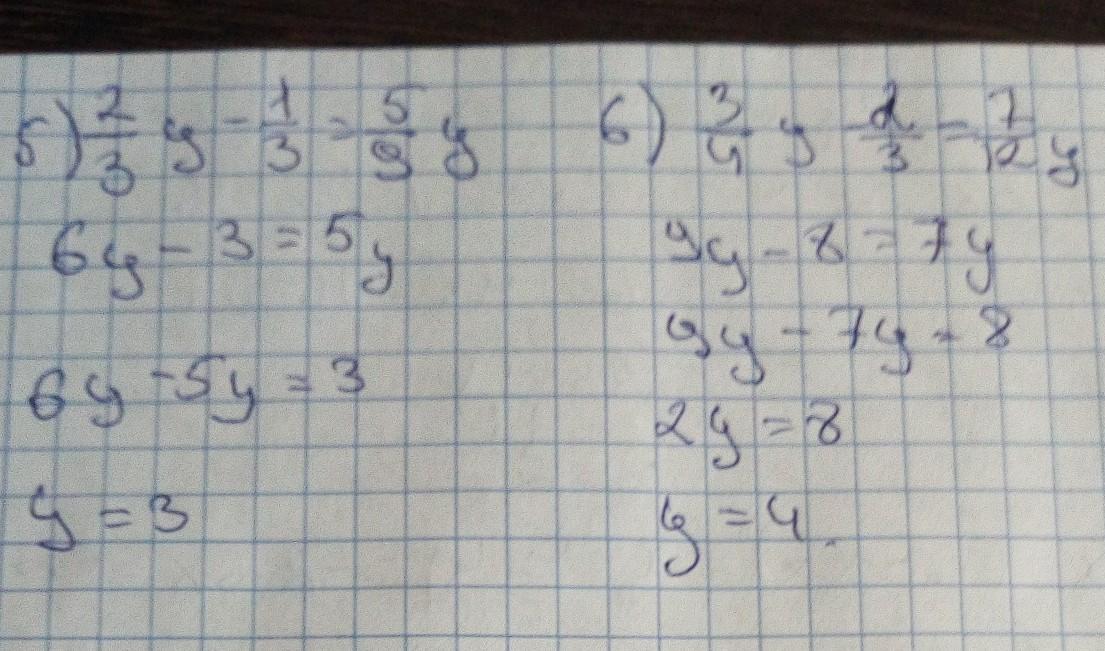 5) 2/3 y - 1/3 = 5/9 y
6y - 3 = 5y
6y - 5y = 3
y = 3
6) 3/4 y - 2/3 = 7/12 y
9y - 8 = 7y
9y - 7y = 8
2y = 8
y = 4.